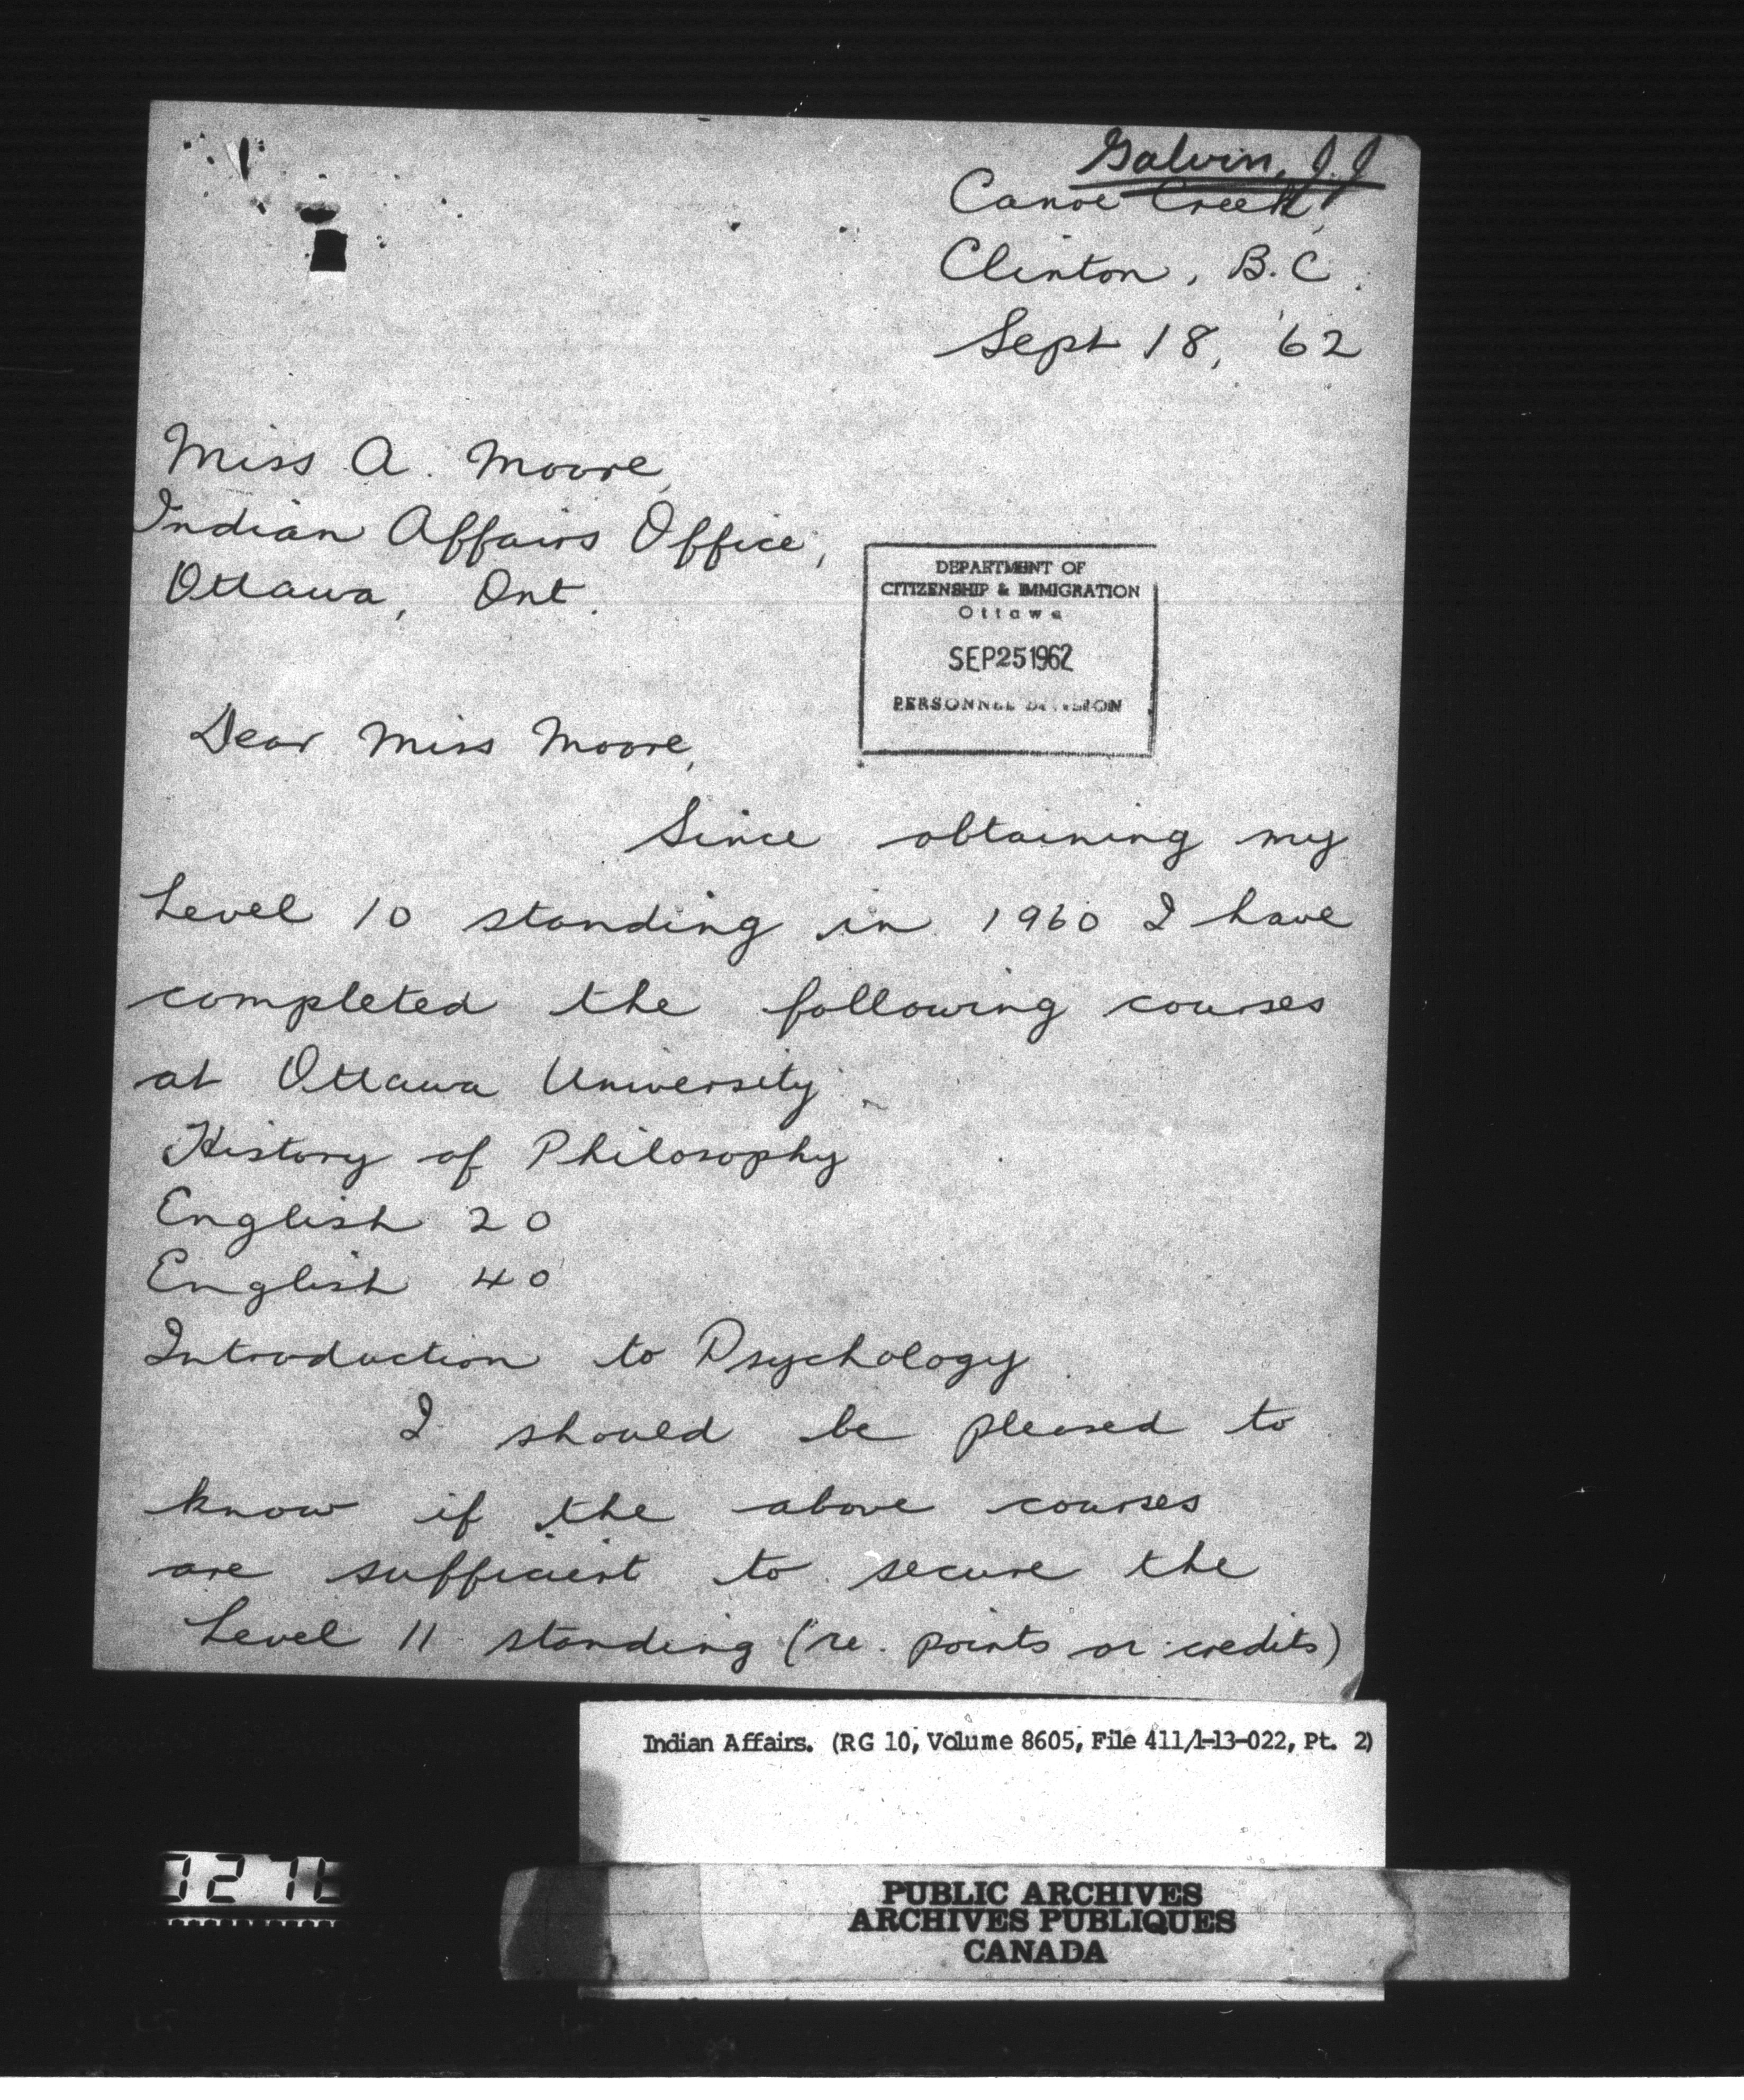 Galvin, J.J
Canoe Creek,
Clinton, B.C.
Sept 18, '62
Miss A. Moore,
Indian Affairs Office,
Ottawa, Ont.
DEPARTMENT OF
CITIZENSHIP & IMMIGRATION
Ottawa
SEP 25 1962
PERSONNEL DIVISION
Dear Miss Moore,
Since obtaining my
Level 10 standing in 1960 I have
completed the following courses
at Ottawa University
History of Philosophy
English 20
English 40
Introduction to Psychology
I should be pleased to
know if the above courses
are sufficient to secure the
Level 11 standing (re. points or credits)
Indian Affairs. (RG 10, Volume 8605, File 411/1-13-022, Pt. 2)
PUBLIC ARCHIVES
ARCHIVES PUBLIQUES
CANADA